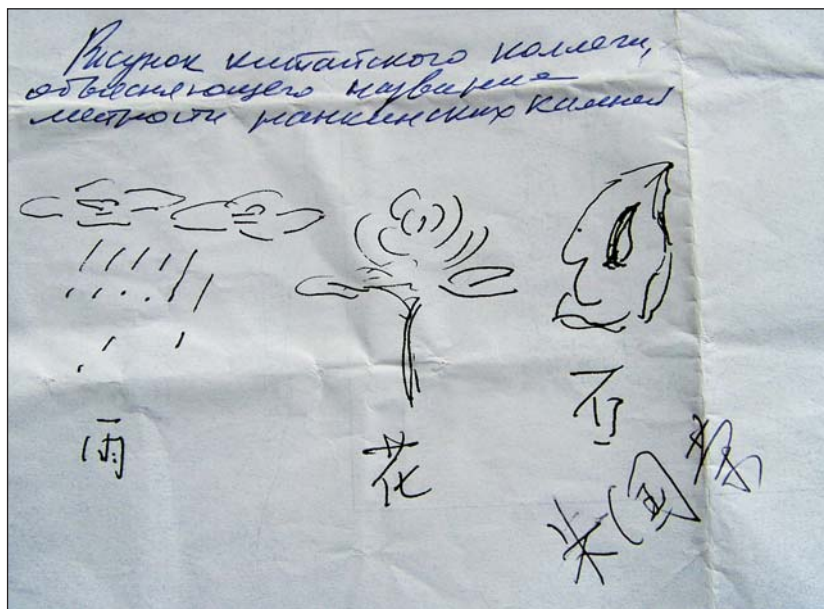 Рисунок китайского коллеги,
объясняющего название
местности нанкинских камней
雨
花
石
朱国